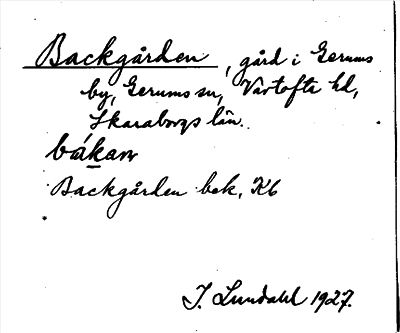 Backgården, gård i Gerums
by, Gerums sn, Vartofta hd,
Skaraborgs län.
Backgården bek, Kb
I. Lundahl 1927.